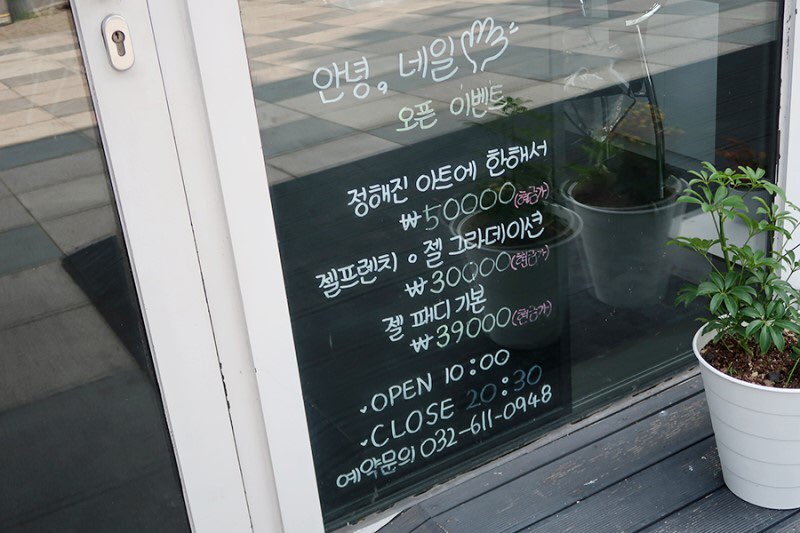 안녕, 네일
오픈 이벤트
정해진 아트에 한해서
₩50000(현금가)
젤프렌치 • 젤 그라데이션
₩30000(현금가)
젤 패디 기본
₩39000(현금가)
OPEN 10:00
CLOSE 20:30
예약문의 032-611-0948